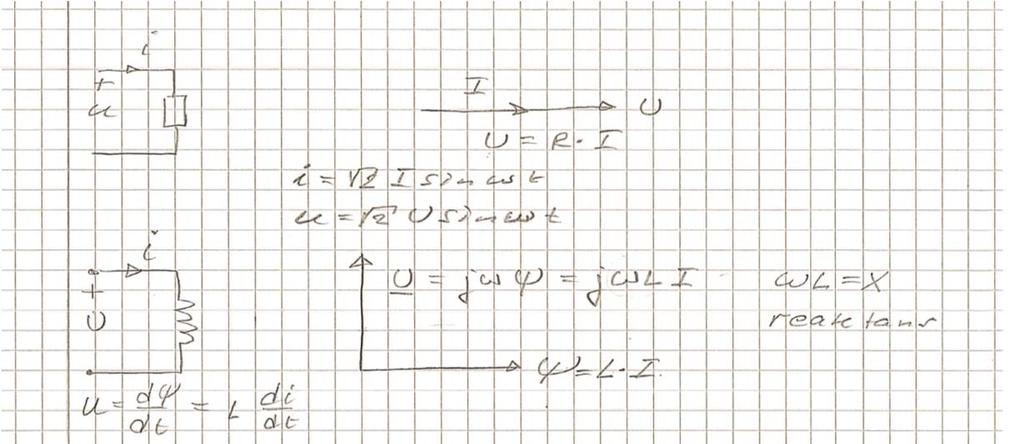 i
+
u
I
U
U = R · I
i = √2 I sin ωt
u = √2 U sin ωt
i
+
U
U = jωψ = jωL I
ωL = X
reaktans
ψ = L · I
u = dψ/dt = L di/dt